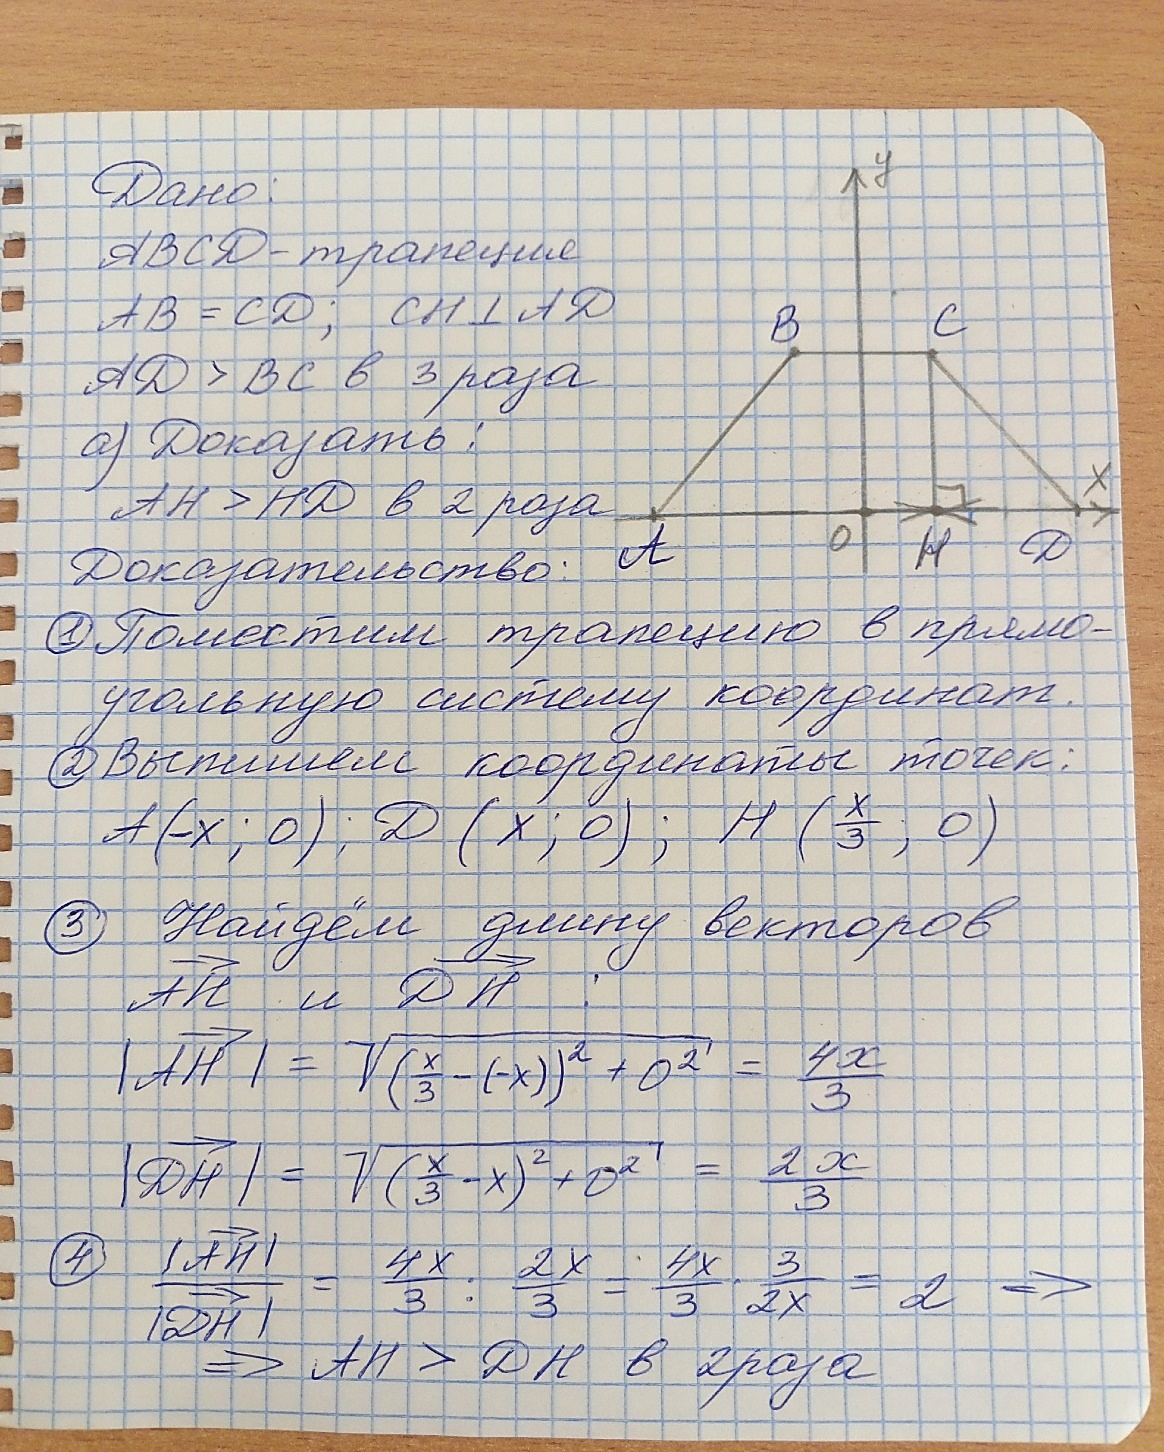 Дано:
ABCD - трапеция
AB = CD; CH ⊥ AD
AD > BC в 3 раза
а) Доказать:
AH > HD в 2 раза
y
B C
x
A O H D
Доказательство:
① Поместим трапецию в прямо-
угольную систему координат.
② Выпишем координаты точек:
A(-x; 0); D(x; 0); H(x/3; 0)
③ Найдём длину векторов
→AH и →DH :
|→AH| = √((x/3 - (-x))² + 0²) = 4x/3
|→DH| = √((x/3 - x)² + 0²) = 2x/3
④ |→AH|/|→DH| = 4x/3 : 2x/3 = 4x/3 · 3/2x = 2 =>
=> AH > DH в 2 раза